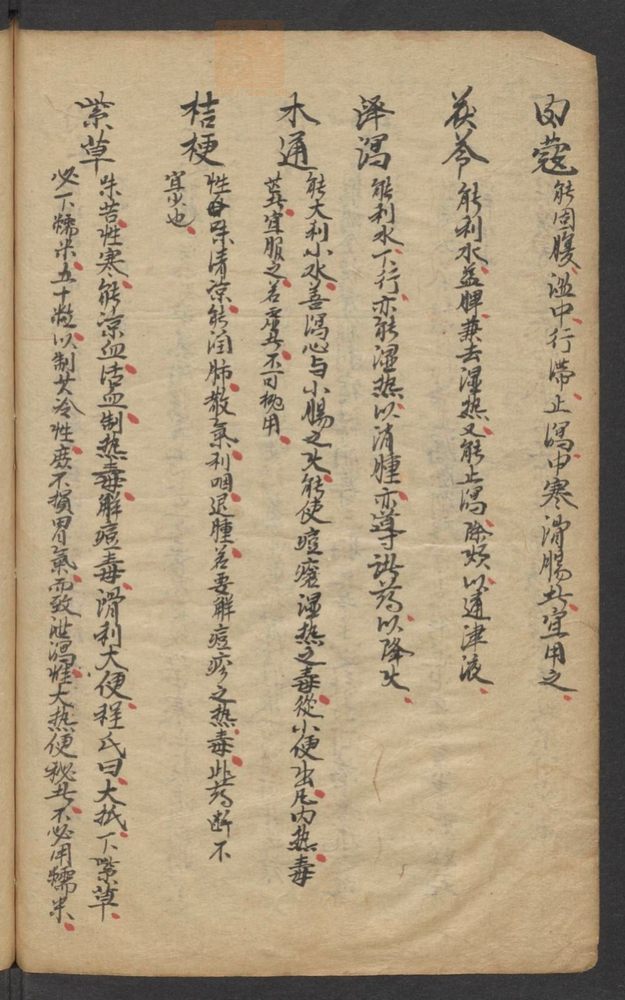 肉蔻 能固腹溫中行滯止瀉中寒滑腸者宜用之
茯苓 能利水益脾兼去濕熱又能止瀉除煩以通津液
泽瀉 能利水下行亦能濕熱以消腫亦導諸药以降火
木通 能大利小水善瀉心与小腸之火能使痘瘡濕熱之毒從小便出凡内熱毒
甚者宜服之若虛者不可概用
桔梗 性味清凉能润肺散氣利咽退腫若要解痘疹之热毒此药断不
宜少也
紫草 味苦性寒能凉血活血制热毒解痘毒滑利大便程氏曰大抵下紫草
必下糯米五十粒以制其冷性庶不損胃氣而致泄瀉惟大热便秘者不必用糯米